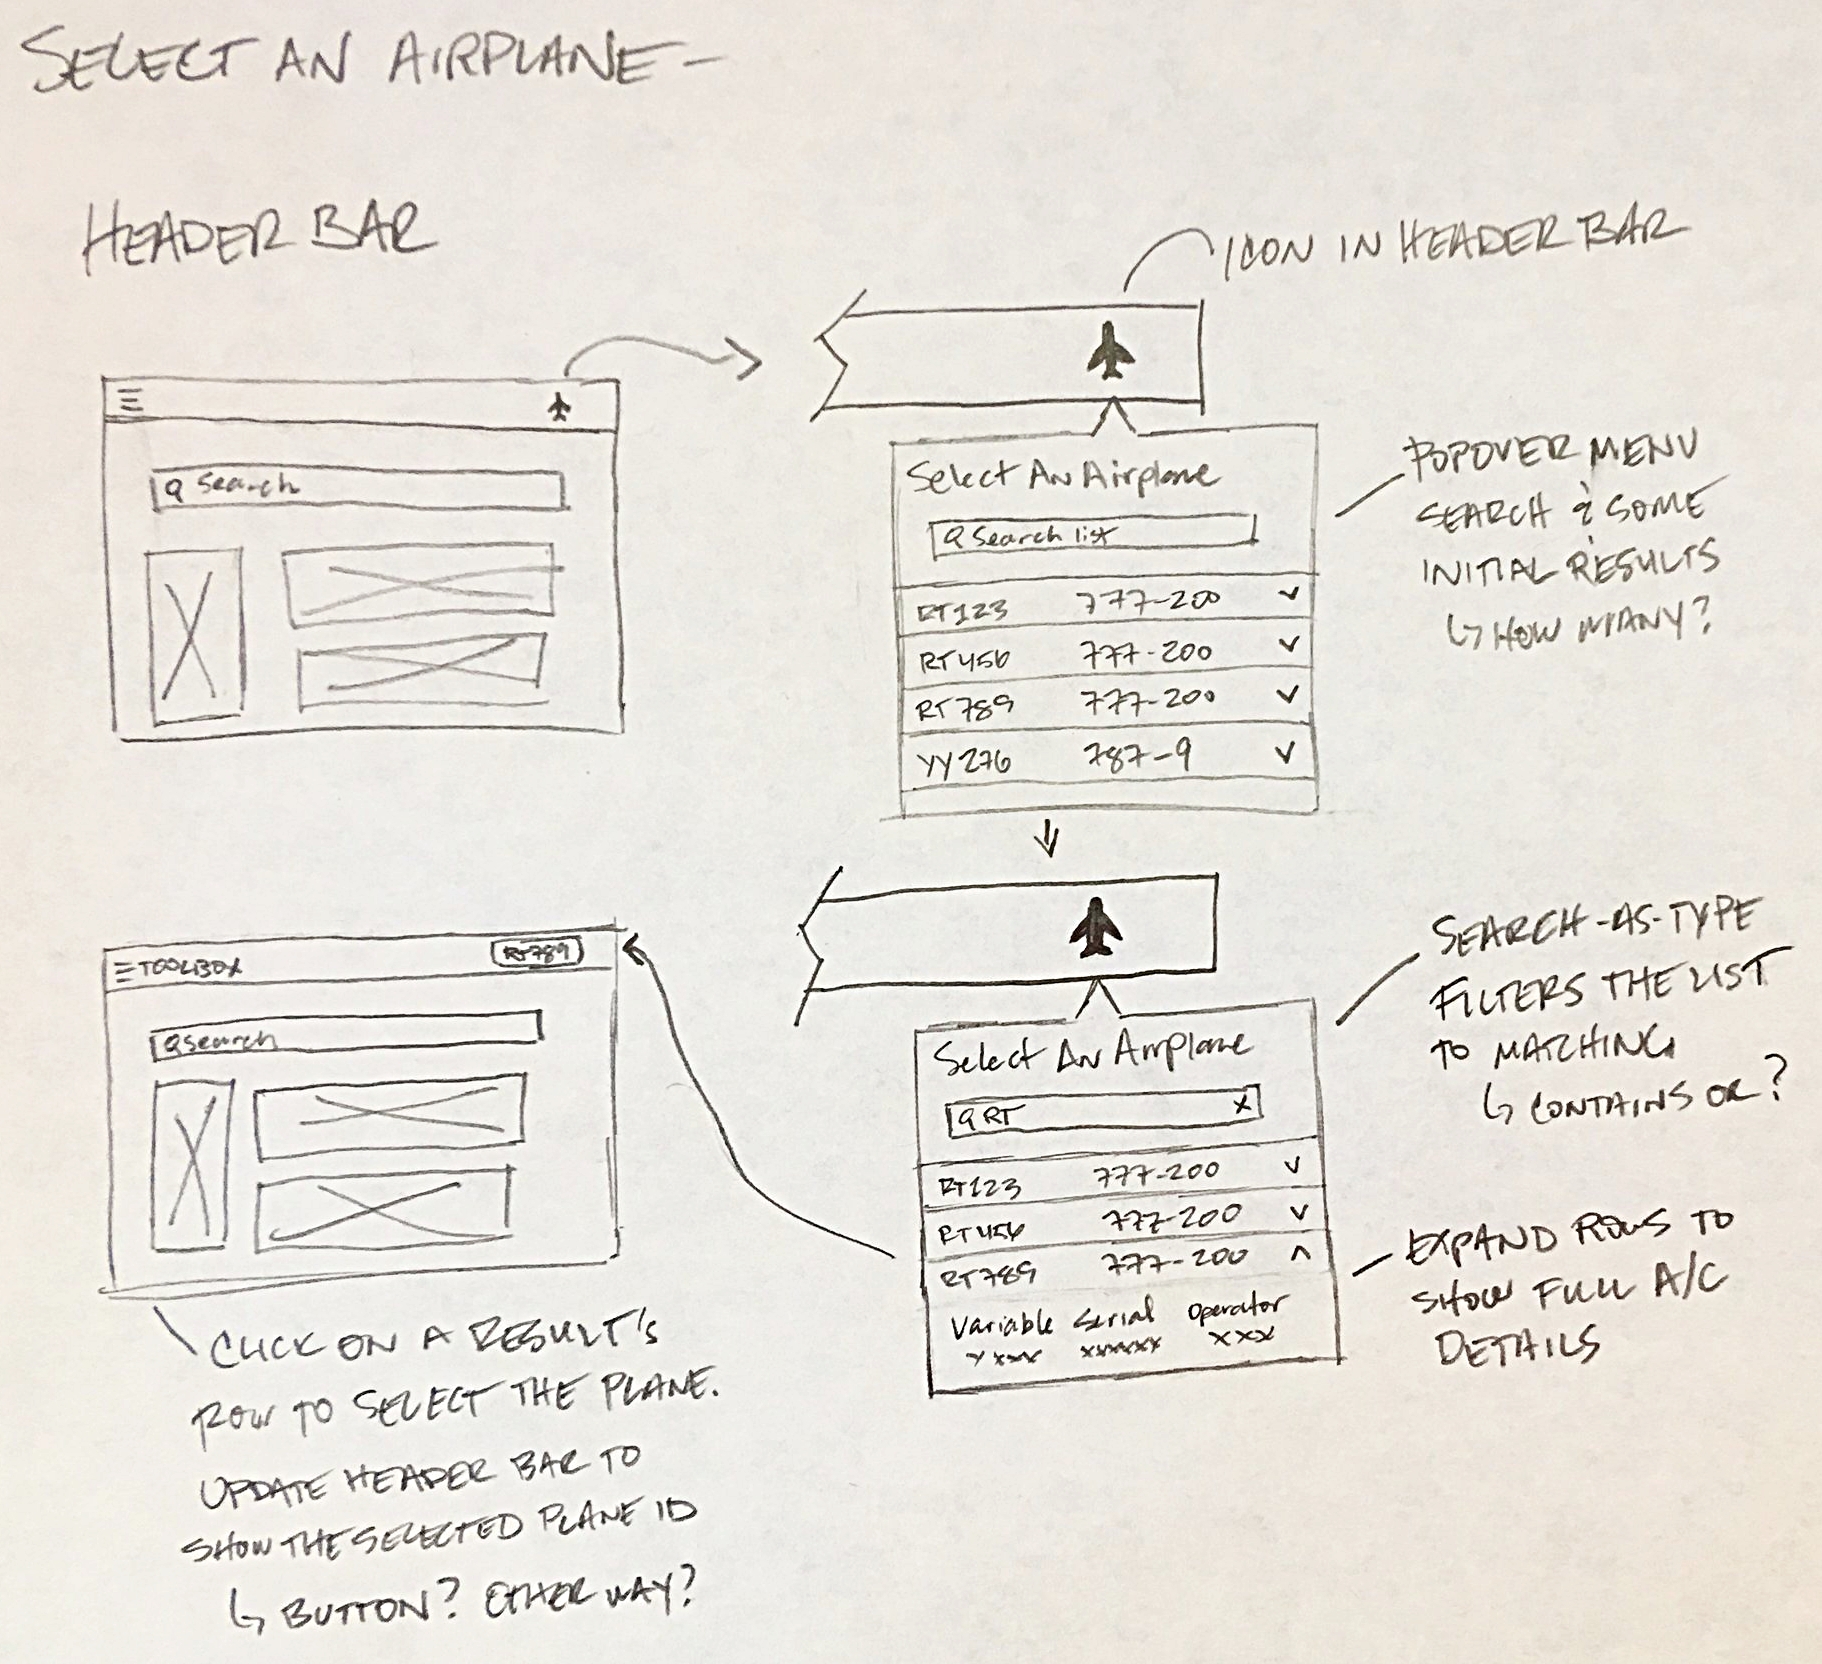 SELECT AN AIRPLANE -
HEADER BAR
ICON IN HEADER BAR
Search
Select An Airplane
Search list
RT123 777-200
RT456 777-200
RT789 777-200
YY276 787-9
POPOVER MENU
SEARCH & SOME
INITIAL RESULTS
↳ HOW MANY?
TOOLBOX RT789
Search
Select An Airplane
RT X
RT123 777-200
RT456 777-200
RT789 777-200
Variable Serial Operator
YXXX XXXXXX XXX
SEARCH-AS-TYPE
FILTERS THE LIST
TO MATCHING
↳ CONTAINS OR?
EXPAND ROWS TO
SHOW FULL A/C
DETAILS
CLICK ON A RESULT'S
ROW TO SELECT THE PLANE.
UPDATE HEADER BAR TO
SHOW THE SELECTED PLANE ID
↳ BUTTON? OTHER WAY?